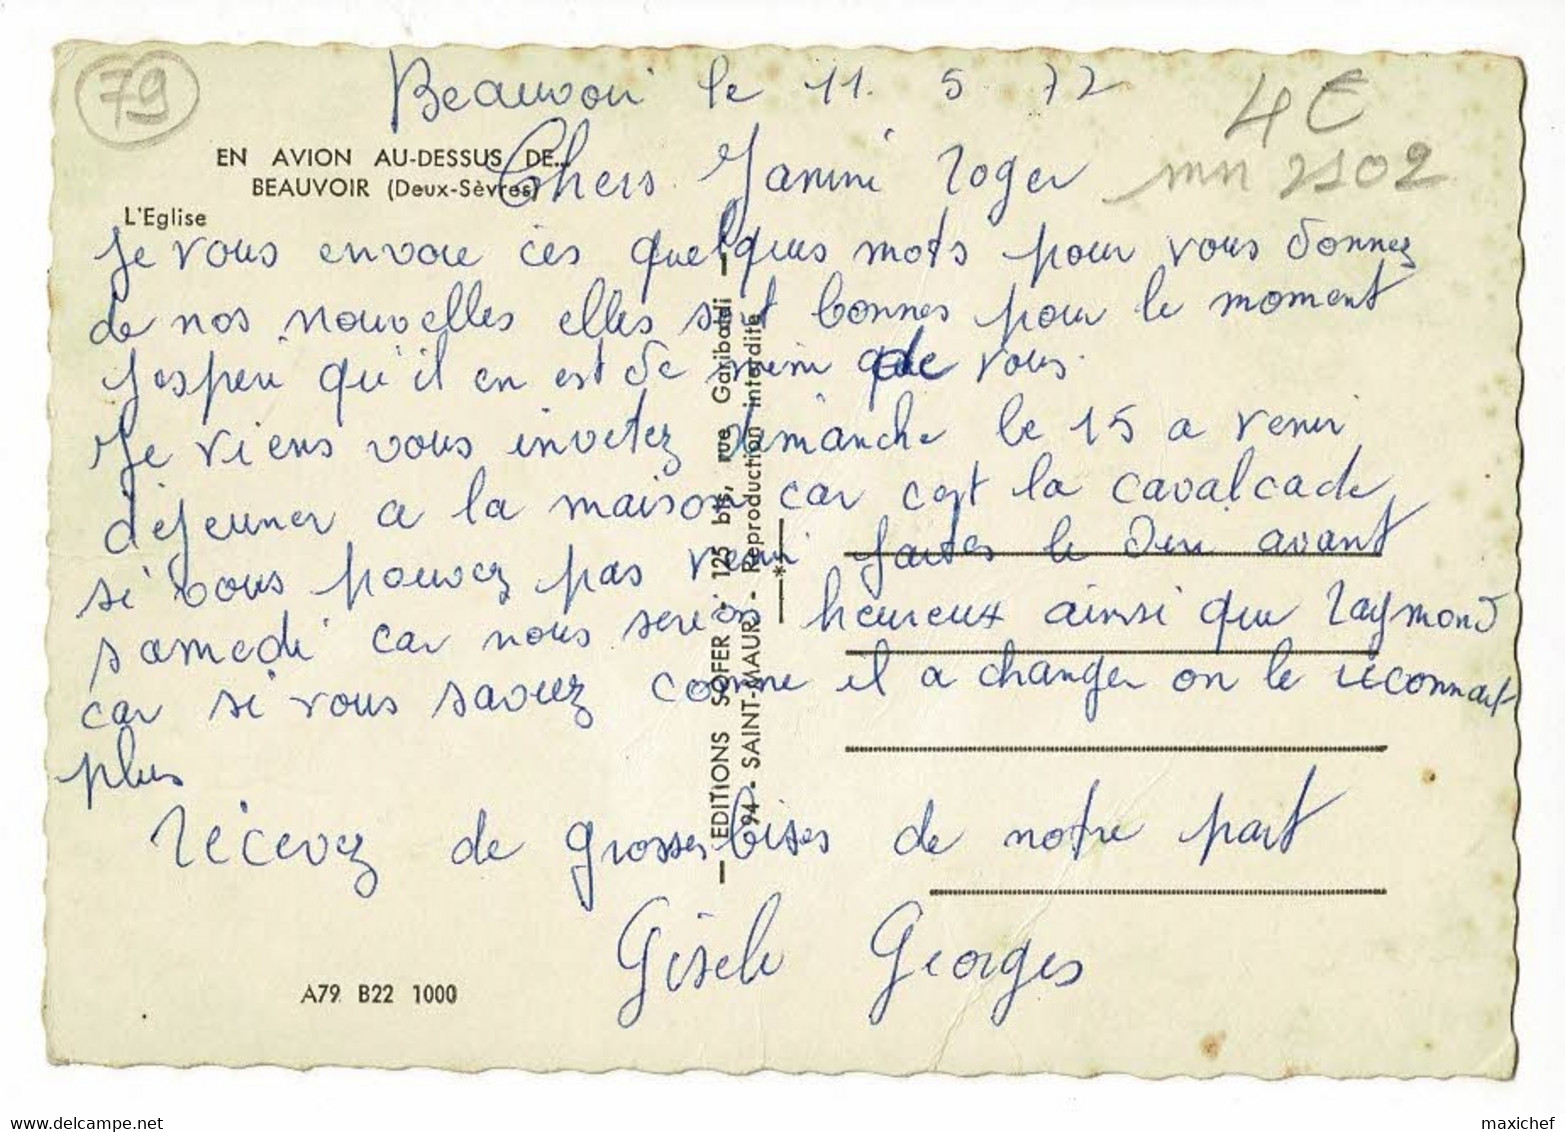 79
Beauvoir le 11. 5 72
4€
EN AVION AU-DESSUS DE...
BEAUVOIR (Deux-Sèvres)
L'Eglise
Chers Janini roger
mn 2102
Je vous envoie ces quelques mots pour vous donnez
de nos nouvelles elles sont bonnes pour le moment
Jesperi qu'il en est de mimi que de vous.
Je viens vous invitez dimanche le 15 a venir
déjeuner a la maison car cest la cavalcade
si vous pouvez pas venir faites le dire avant
samedi car nous serions heureux ainsi que raymond
car si vous saviez comme il a changer on le reconnait
plus
récevez de grosses bises de notre part
Gisele Georges
EDITIONS SOFER - 125 bis, rue Garibaldi
94 - SAINT-MAUR - Reproduction interdite
A79 B22 1000
delcampe.net
maxichef